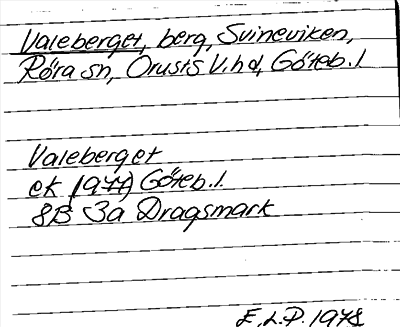 Valeberget, berg, Svineviken,
Röra sn, Orusts V. hd, Göteb. l
Valeberget
ek (1977) Göteb. l.
8B 3a Dragsmark
E.L.P. 1978